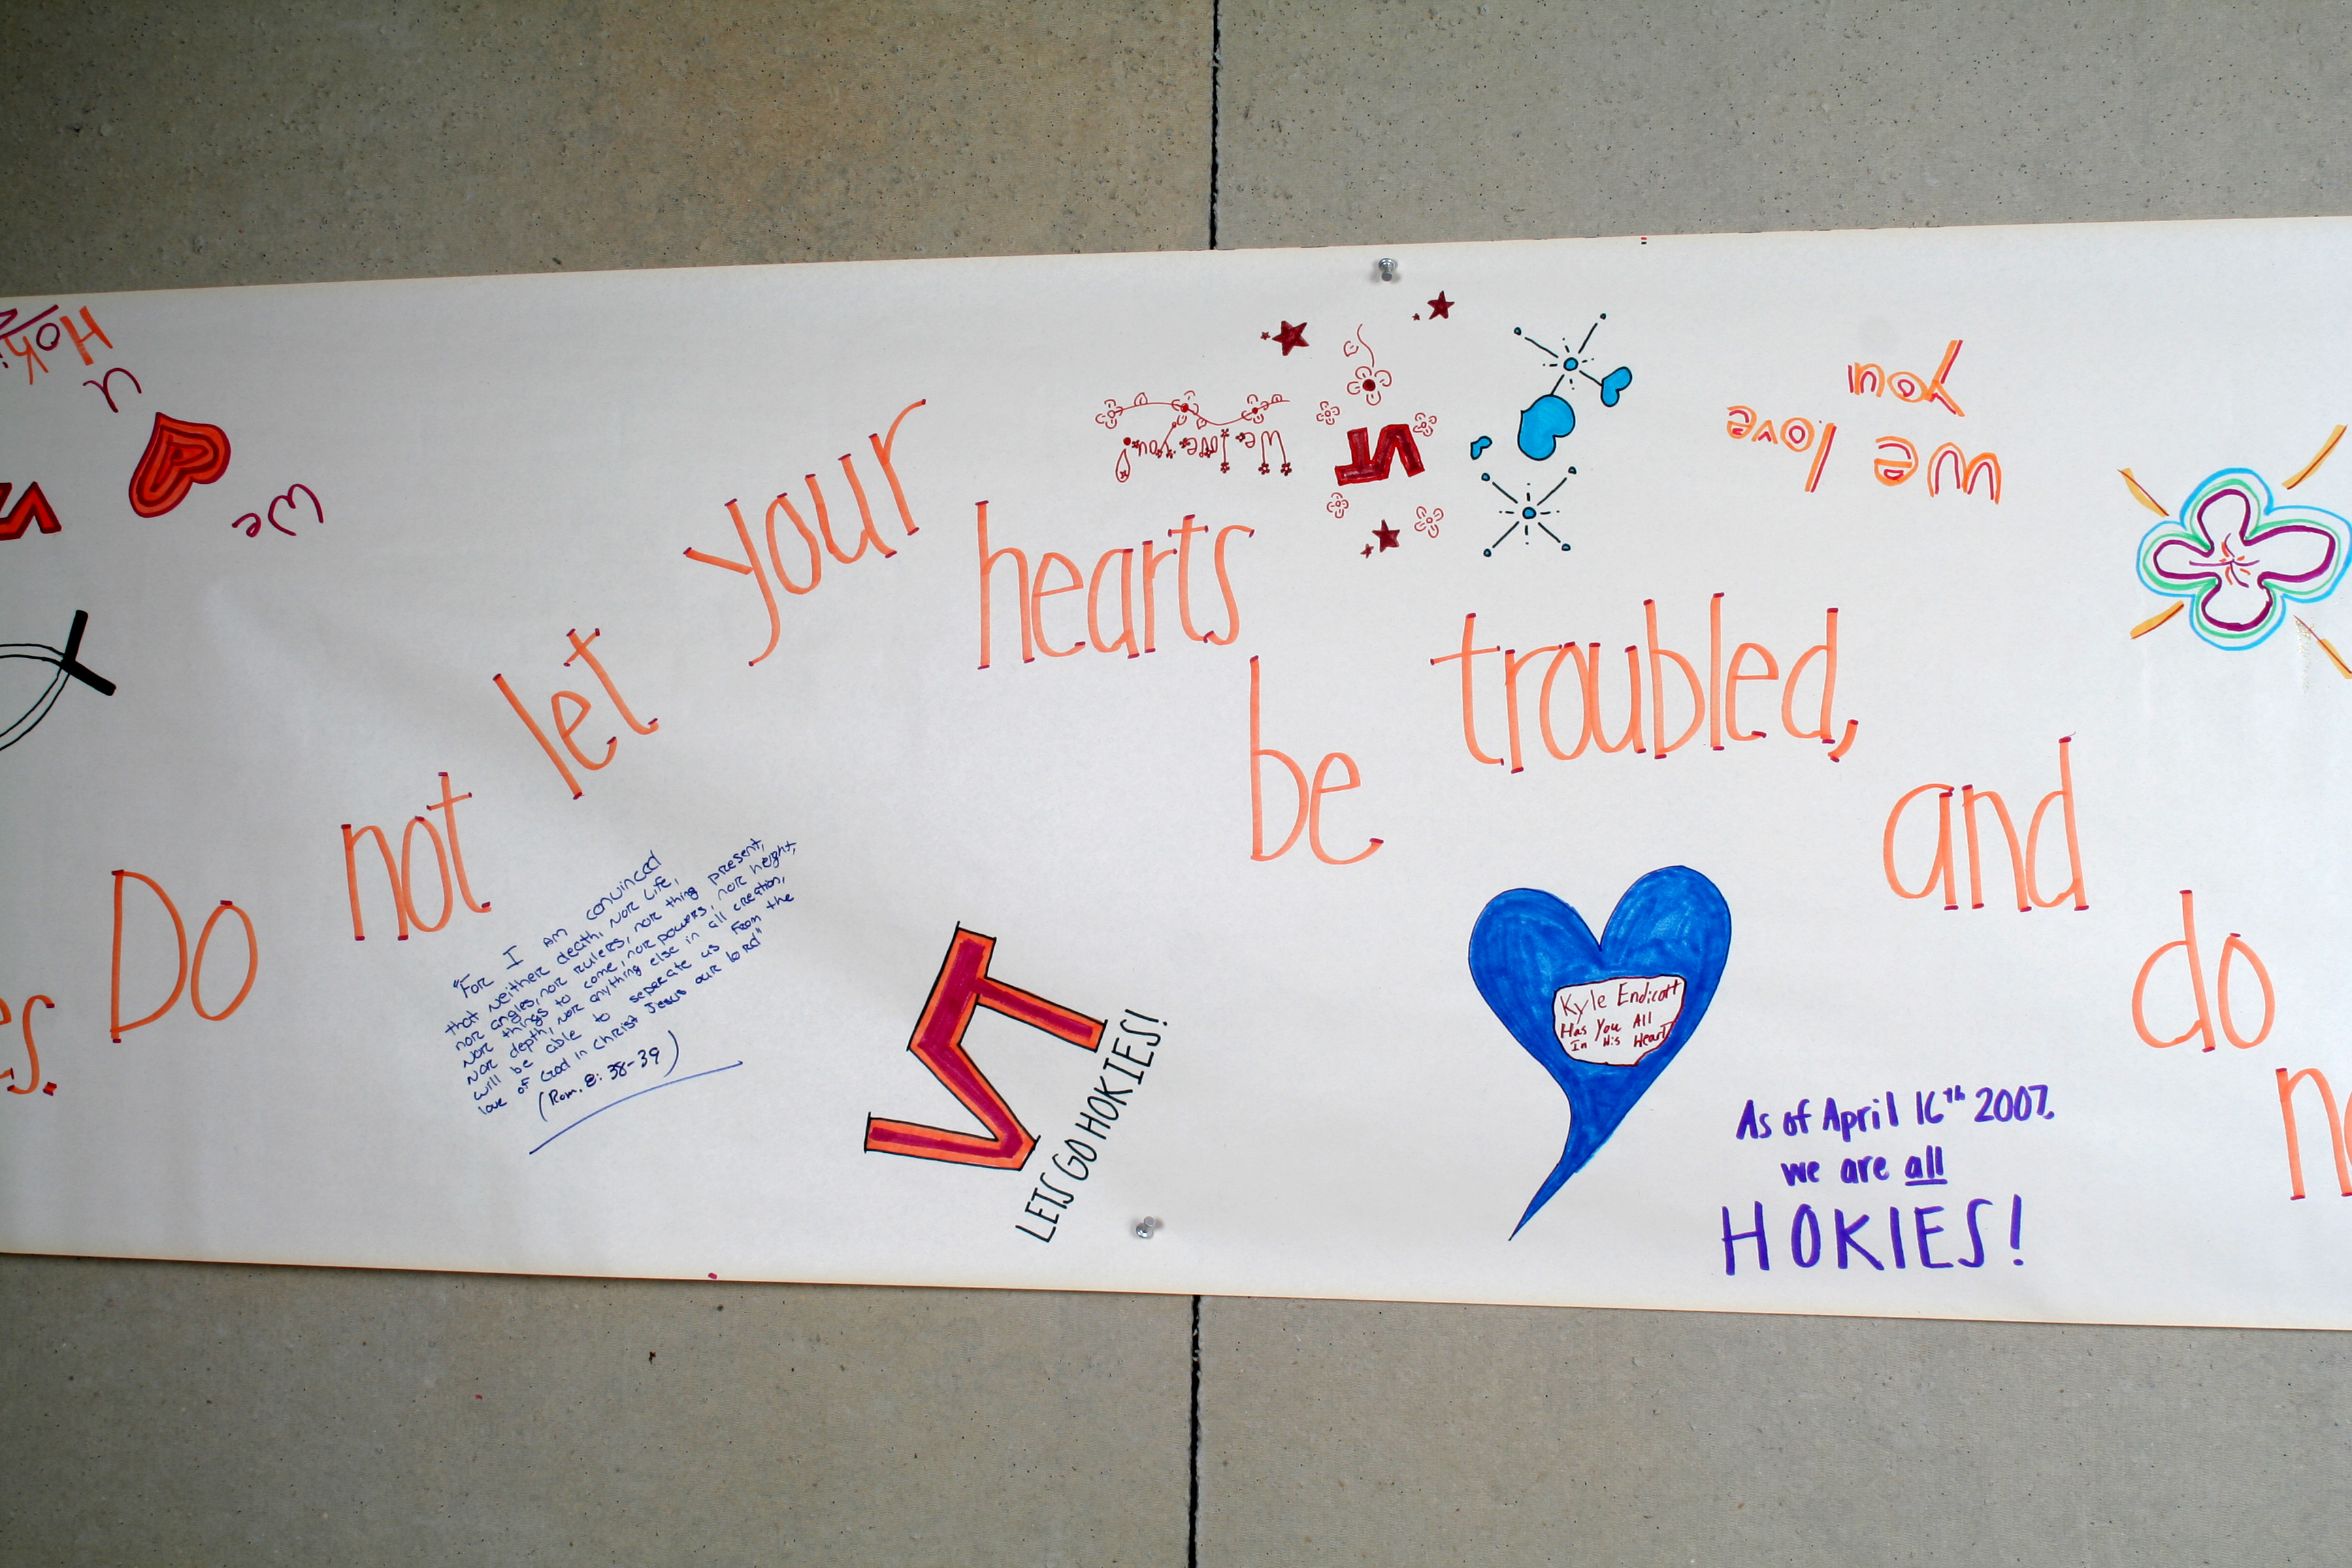 Hoki
u
We
VT
es. Do not let your hearts be troubled, and do no
We love you!
VT
We love
you
"For I am convinced
that neither death, nor life,
nor angles, nor rulers, nor thing present,
nor things to come, nor powers, nor height,
nor depth, nor anything else in all creation,
will be able to seperate us from the
love of God in Christ Jesus our lord"
(Rom. 8: 38-39)
VT
LETS GO HOKIES!
Kyle Endicott
Has You All
In His Heart
As of April 16th 2007,
we are all
HOKIES!